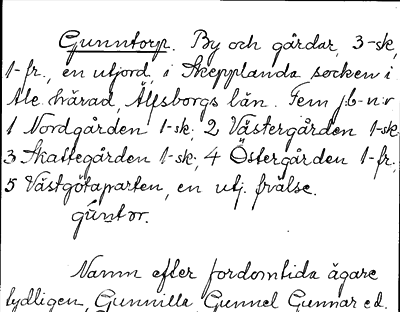 Gunntorp. By och gårdar, 3-sk,
1-fr, en utjord, i Skepplanda socken i
Ale härad, Älfsborgs län. Fem jb-n:r
1 Nordgården 1-sk, 2 Västergården 1-sk
3 Skattegården 1-sk, 4 Östergården 1-fr,
5 Västgötaparten, en utj. frälse.
gúntor.
Namn efter fordomtida ägare
tydligen, Gunnilla, Gunnel Gunnar ed.